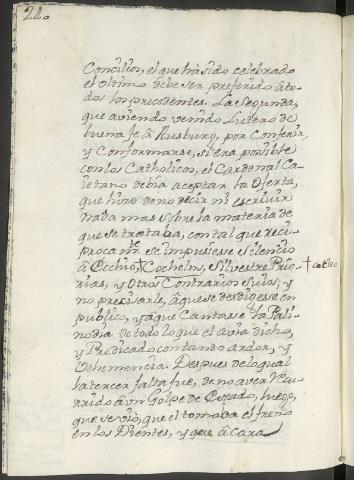 Concilios, el que hà sido celebrado
el Vltimo debe ser preferido à to-
dos los precedentes. La Segunda,
que aviendo venido Lutero de
buena fe â Ausburg, por Conferir,
y Conformarse, si era posible
con los Catholicos, el Cardenal Ca-
ietano debia aceptar la Oferta,
que hizo de no decir ni escriuir
nada mas sobre la materia de
que se trataba, con tal que reci-
procamte. se impusiese silencio
â Ecchio, † Cochelns, Silvestre Prie- † Cocleo
rias, y Otros Contrarios Suios, y
no precisarle, â que se desdijese en
publico, y â que Cantase la Pali-
nodia de todo lo que el avia dicho,
y Predicado con tanto ardor, y
Vehemencia. Despues de lo qual
la tercer falta fue, de no aver Recu-
rrido â vn Golpe de Estado, luego,
que se viò, que el tomaba el freno
en los Dientes, y que â Cara